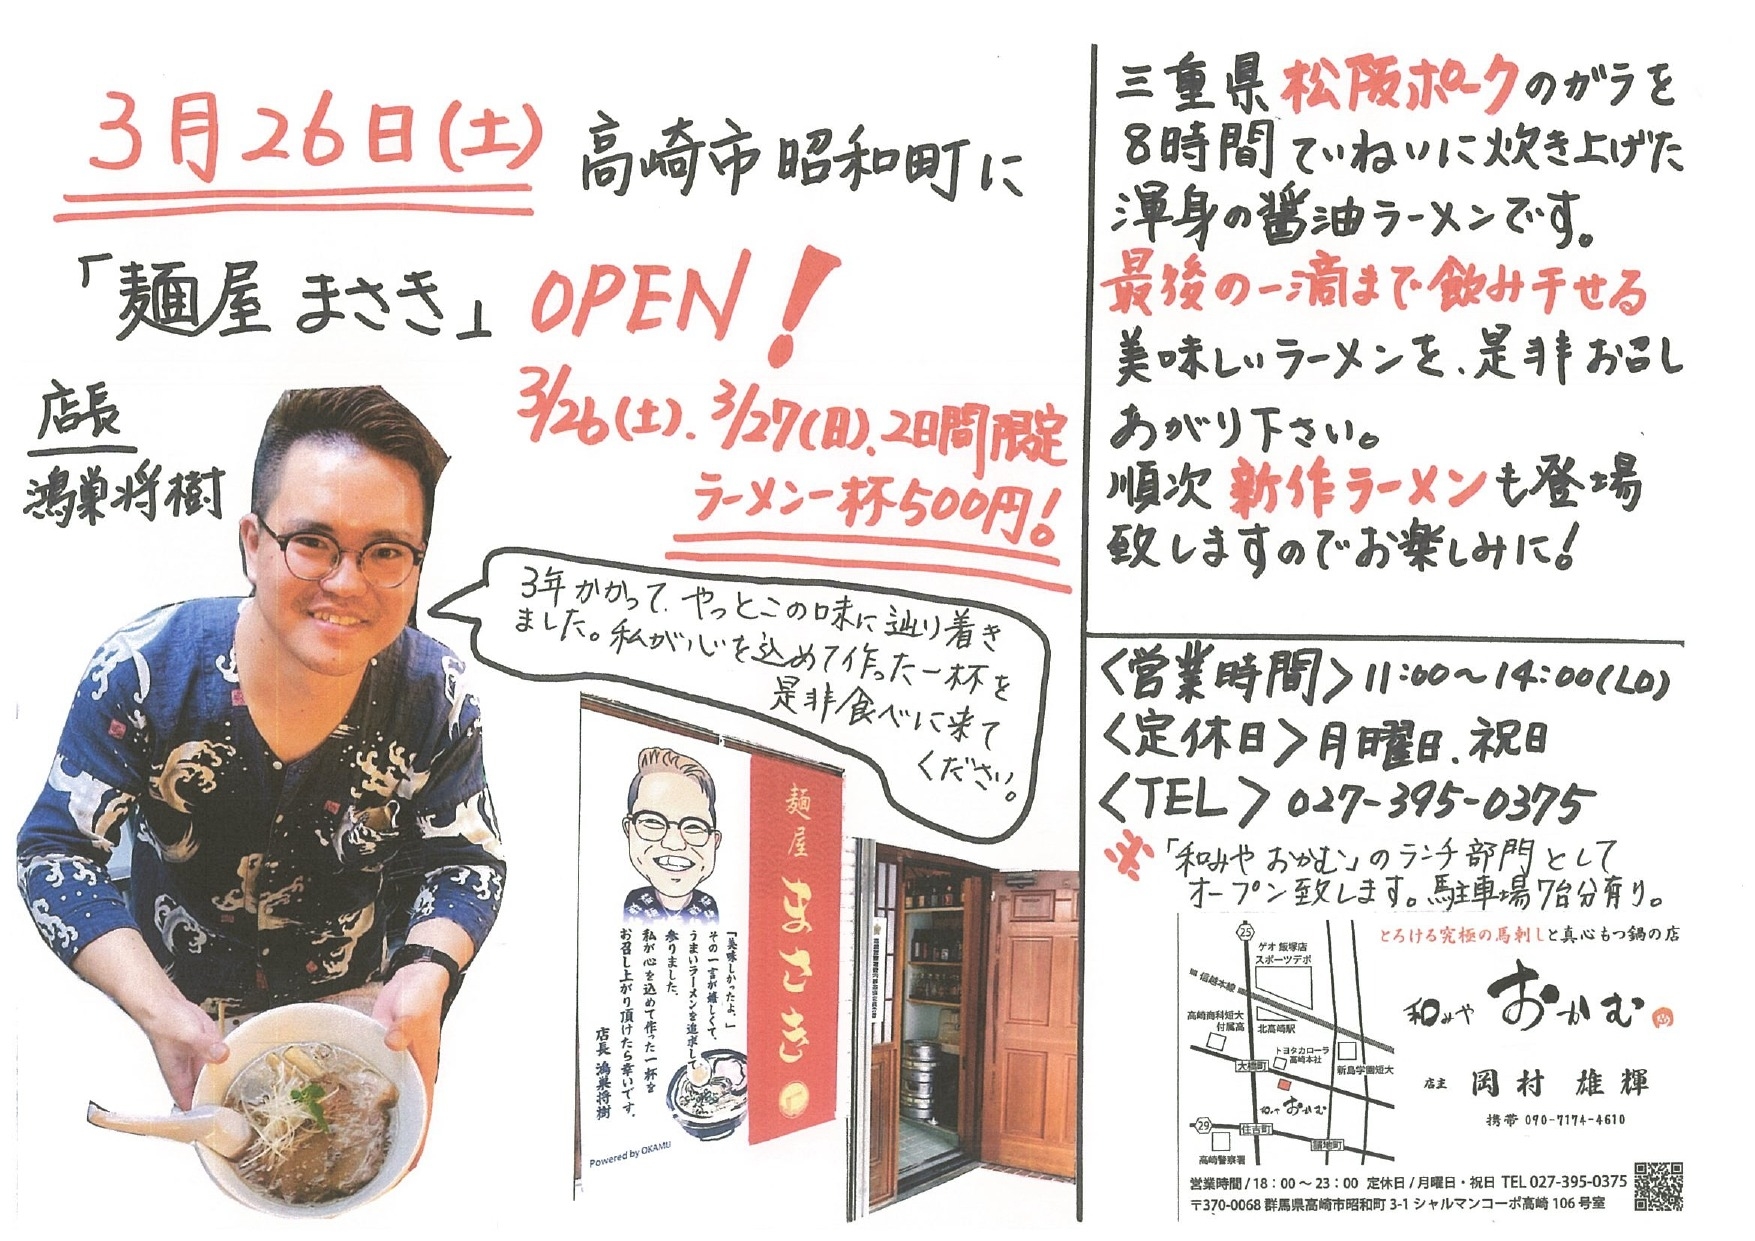 3月26日(土) 高崎市昭和町に
「麺屋 まさき」 OPEN!
3/26(土)、3/27(日)、2日間限定
ラーメン一杯500円!
店長
鴻巣将樹
3年かかって、やっとこの味に辿り着き
ました。私が心を込めて作った一杯を
是非食べに来て
ください。
麺屋 まさき
「美味しかったよ。」
その一言が嬉しくて、
うまいラーメンを追求して
参りました。
私が心を込めて作った一杯を
お召し上がり頂けたら幸いです。
店長 鴻巣将樹
Powered by OKAMU
三重県松阪ポークのガラを
8時間ていねいに炊き上げた
渾身の醤油ラーメンです。
最後の一滴まで飲み干せる
美味しいラーメンを、是非お召し
あがり下さい。
順次新作ラーメンも登場
致しますのでお楽しみに!
<営業時間> 11:00〜14:00(LO)
<定休日> 月曜日、祝日
<TEL> 027-395-0375
※「和みや おかむ」のランチ部門として
オープン致します。駐車場7台分有り。
とろける究極の馬刺しと真心もつ鍋の店
和みや おかむ
店主 岡村 雄輝
携帯 090-7174-4610
25
ゲオ 飯塚店
スポーツデポ
信越本線
高崎商科短大
付属高
北高崎駅
トヨタカローラ
高崎本社
新島学園短大
大橋町
和みや おかむ
29
住吉町
請地町
高崎警察署
営業時間/18:00〜23:00 定休日/月曜日・祝日 TEL 027-395-0375
〒370-0068 群馬県高崎市昭和町 3-1 シャルマンコーポ高崎 106 号室